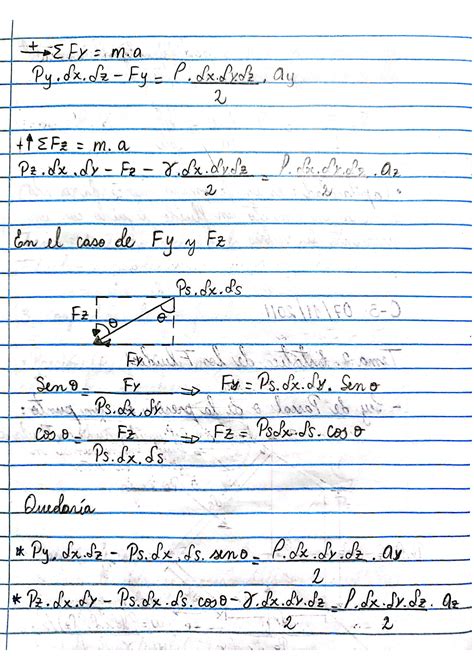 +→ ΣFy = m.a
Py.δx.δz - Fy = ρ.δx.δy.δz/2 . ay
+↑ ΣFz = m.a
Pz.δx.δy - Fz - γ.δx.δyδz/2 = ρ.δx.δy.δz/2 . az
En el caso de Fy y Fz
Ps.δx.δs
Fz θ θ
Fy
Senθ = Fy/Ps.δx.δs ⇒ Fy = Ps.δx.δy. Senθ
cosθ = Fz/Ps.δx.δs ⇒ Fz = Psδx.δs. cosθ
Quedaría
* Py.δx.δz - Ps.δx.δs. senθ = ρ.δx.δy.δz/2 . ay
* Pz.δx.δy - Ps.δx.δs. cosθ - γ.δx.δy.δz/2 = ρ.δx.δy.δz/2 . az